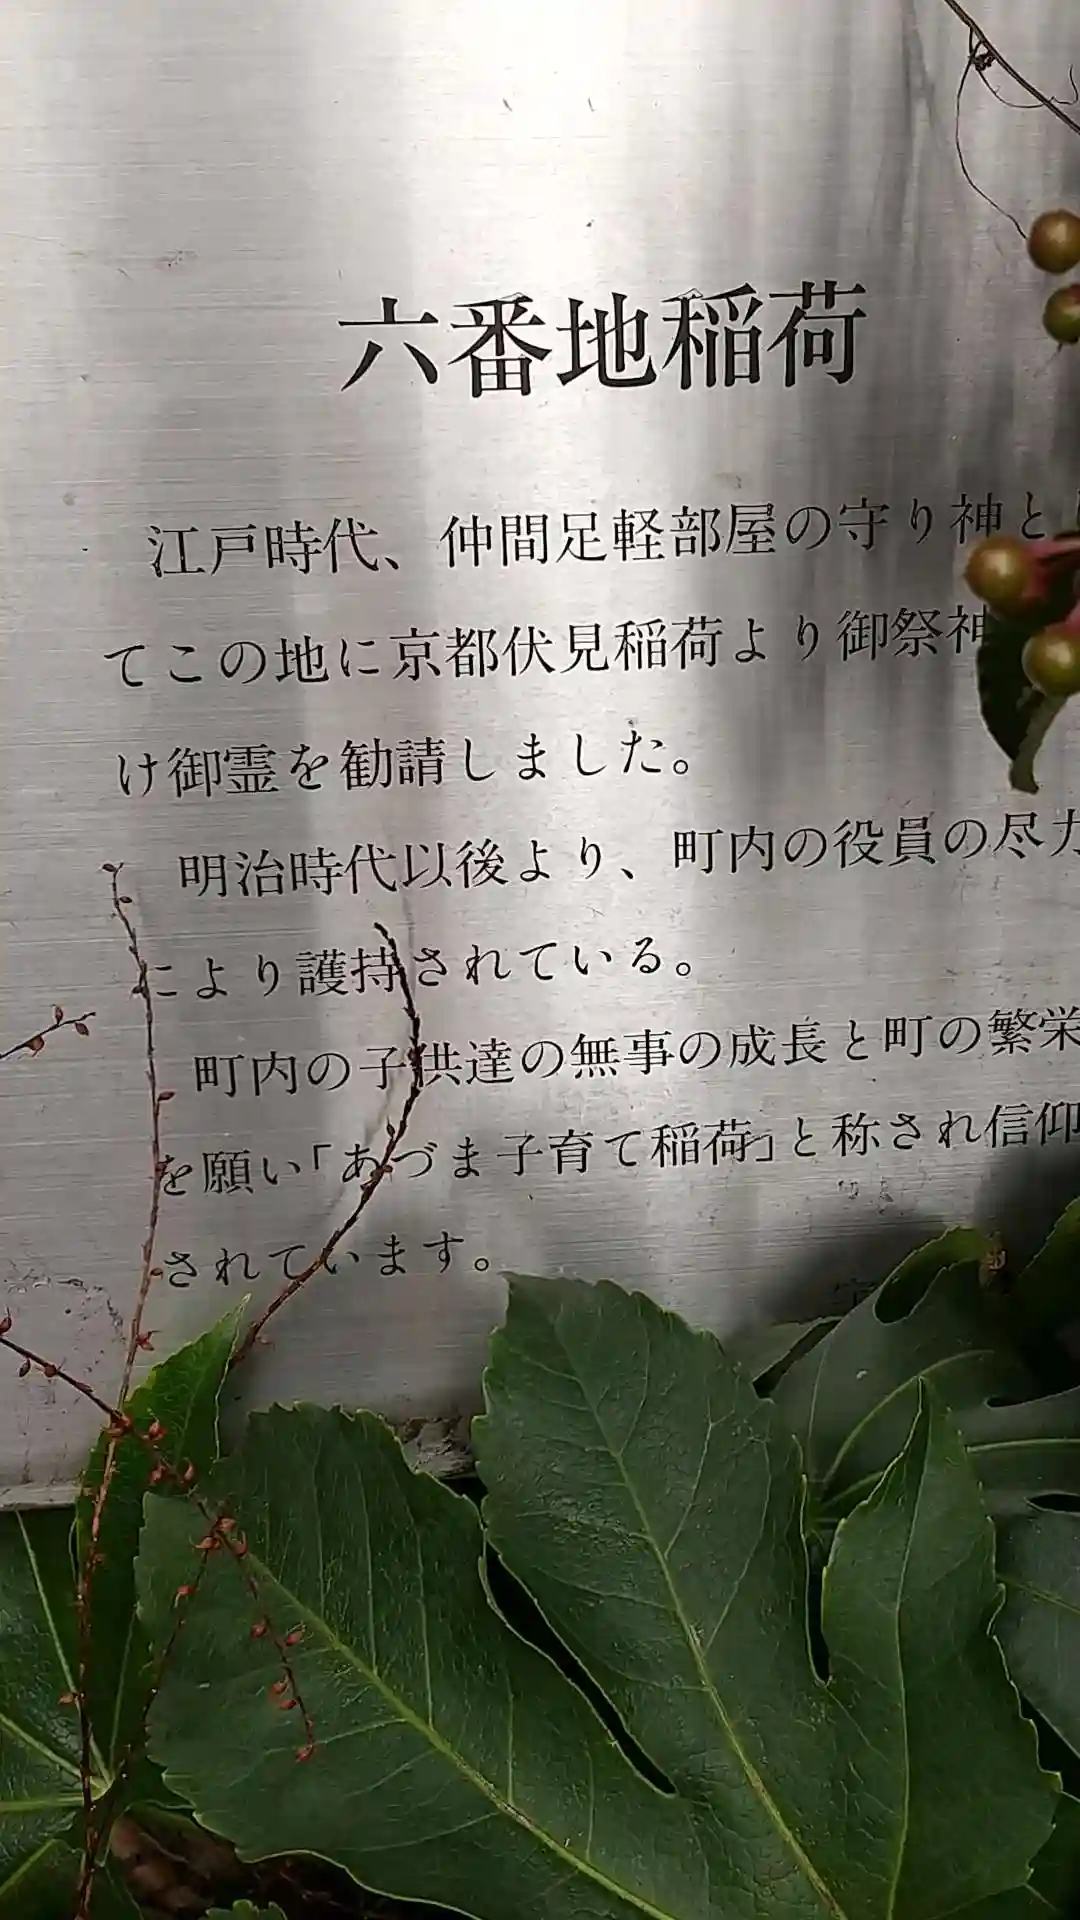 六番地稲荷
江戸時代、仲間足軽部屋の守り神とし
てこの地に京都伏見稲荷より御祭神
け御霊を勧請しました。
明治時代以後より、町内の役員の尽力
により護持されている。
町内の子供達の無事の成長と町の繁栄
を願い「あづま子育て稲荷」と称され信仰
されています。